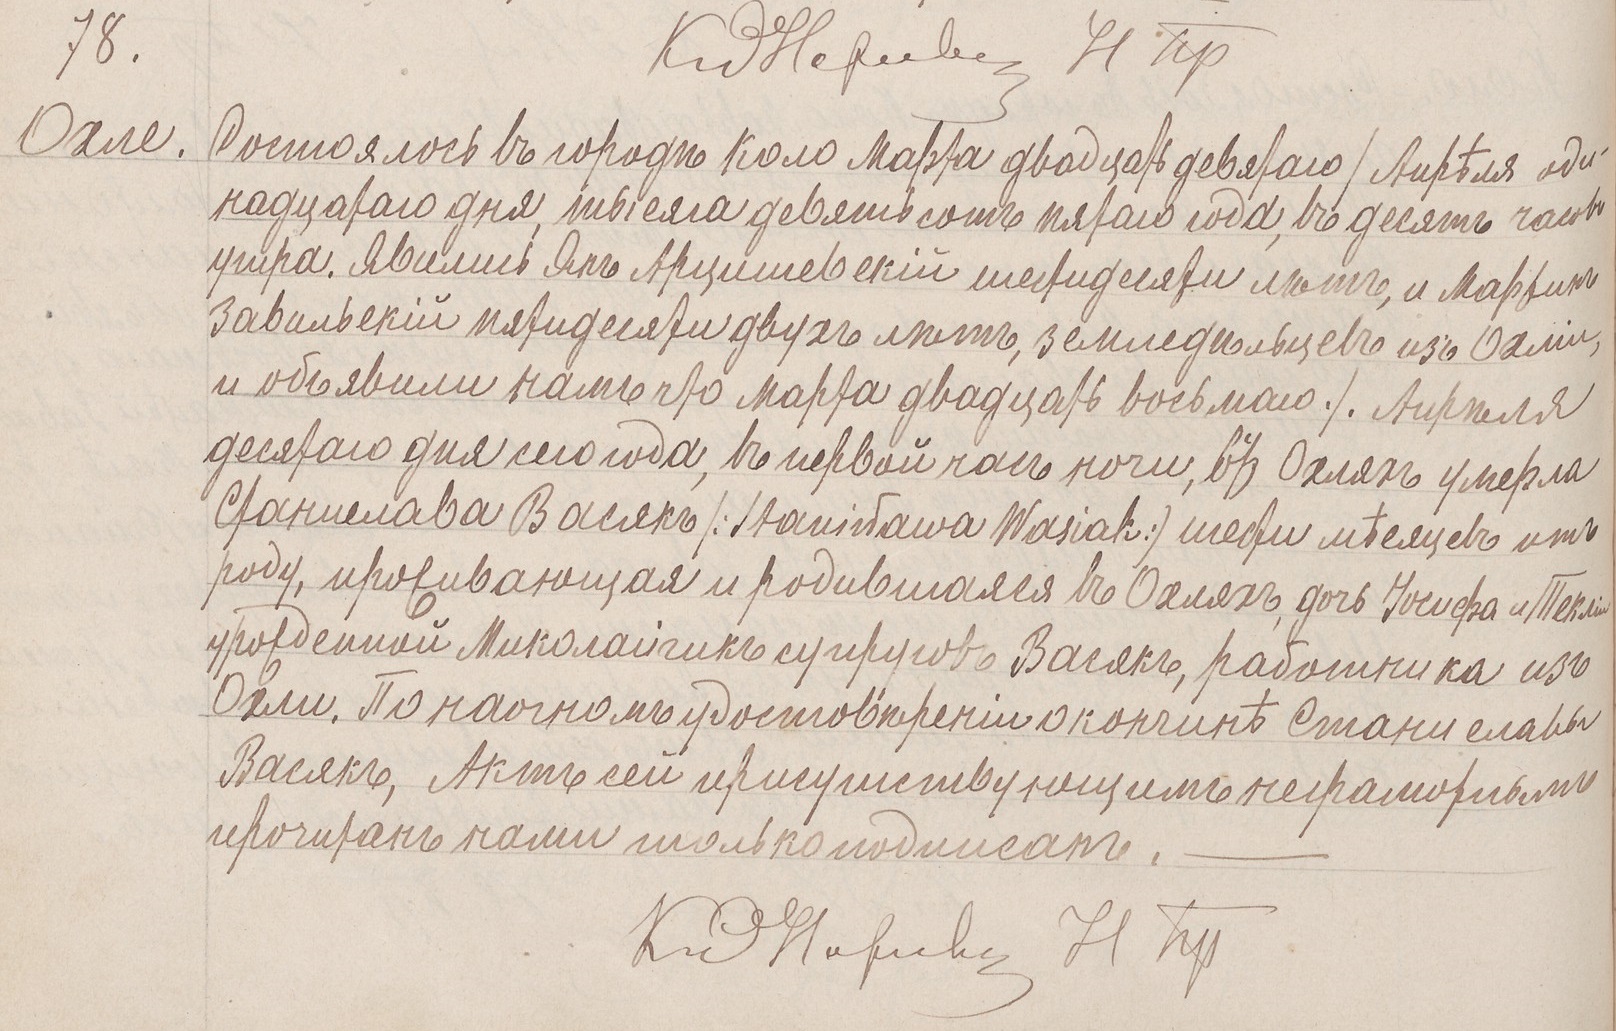 78.
Н Пр
Охле.
Состоялось въ городѣ Коло Марта двадцать девятаго / Апрѣля оди-
надцатаго дня, тысяча девятьсотъ пятаго года, въ десять часовъ
утра. Явились Янъ Арцишевскій шестидесяти лѣтъ, и Мартинъ
Завильскій пятидесяти двухъ лѣтъ, земледѣльцевъ изъ Охли,
и объявили намъ что Марта двадцать восьмаго ./. Апрѣля
десятаго дня сего года, въ первой часъ ночи, въ Охляхъ умерла
Станислава Васякъ /:Stanisława Wasiak:/ шести мѣсяцевъ отъ
роду, проживающая и родившаяся въ Охляхъ, дочь Іосифа и Теклии
урожденной Миколайчикъ супруговъ Васякъ, работника изъ
Охли. По наочномъ удостовѣреніи о кончинѣ Станиславы
Васякъ, Актъ сей присутствующимъ неграмотнымъ
прочитанъ нами только подписанъ.
Н Пр